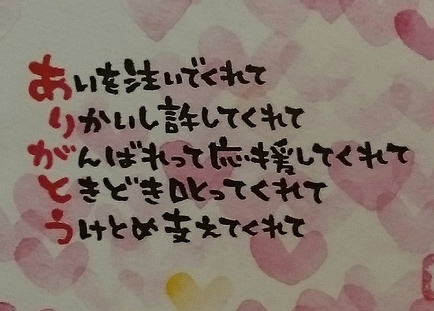 あいを注いでくれて
りかいし許してくれて
がんばれって応援してくれて
ときどき叱ってくれて
うけとめ支えてくれて